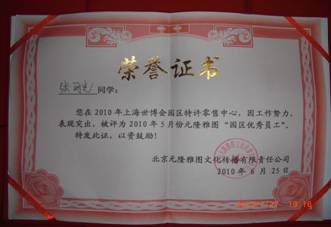 荣誉证书
同学:
您在2010年上海世博会园区特许零售中心,因工作努力,
表现突出,被评为2010年5月份元隆雅图“园区优秀员工”,
特发此证,以资鼓励!
北京元隆雅图文化传播有限责任公司
2010年6月25日